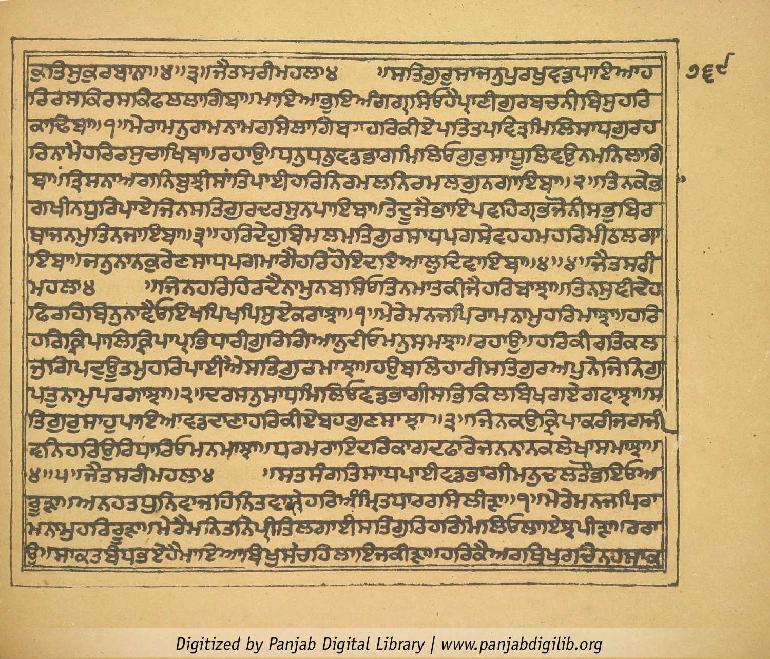 ਕੁਤਿਸੁਕੁਰਬਾਨਾ॥੪॥੩॥ਜੈਤਸਰੀਮਹਲਾ੪ ॥ਸਤਿਗੁਰੁਸਾਜਨੁਪੁਰਖੁਵਡਪਾਇਆਹ ੭੬੯
ਰਿਰਸਕਿਰਸਕਿਫਲਲਾਗਿਬਾ॥ਮਾਇਆਭੁਇਅੰਗਗ੍ਰਸਿਓਹੈਪ੍ਰਾਣੀਗੁਰਬਚਨੀਬਿਸੁਹਰਿ
ਕਾਢਿਬਾ॥੧॥ਮੇਰਾਮਨੁਰਾਮਨਾਮਰਸਿਲਾਗਿਬਾ॥ਹਰਿਕੀਏਪਤਿਤਪਵਿਤ੍ਰਮਿਲਿਸਾਧਗੁਰਹ
ਰਿਨਾਮੈਹਰਿਰਸੁਚਾਖਿਬਾ॥ਰਹਾਉ॥ਧਨੁਧਨੁਵਡਭਾਗਮਿਲਿਓਗੁਰੁਸਾਧੂਲਿਵਉਨਮਨਿਲਾਗਿ
ਬਾ॥ਤ੍ਰਿਸਨਾਅਗਨਿਬੁਝੀਸਾਂਤਿਪਾਈਹਰਿਨਿਰਮਲਨਿਰਮਲਗੁਨਗਾਇਬਾ॥੨॥ਤਿਨਕੇਭ
ਗਖੀਨਧੁਰਿਪਾਏਜਿਨਸਤਿਗੁਰਦਰਸੁਨਪਾਇਬਾ॥ਤੇਦੂਜੈਭਾਇਪਵਹਿਗ੍ਰਭਜੋਨੀਸਭੁਬਿਰ
ਥਾਜਨਮੁਤਿਨਜਾਇਬਾ॥੩॥ਹਰਿਦੇਹੁਬਿਮਲਮਤਿਗੁਰਸਾਧਪਗਸੇਵਹਹਮਹਰਿਮੀਠਲਗਾ
ਇਬਾ॥ਜਨੁਨਾਨਕੁਰੇਣਸਾਧਪਗਮਾਗੈਹਰਿਹੋਇਦਇਆਲੁਦਿਵਾਇਬਾ॥੪॥੪॥ਜੈਤਸਰੀ
ਮਹਲਾ੪ ॥ਜਿਨਹਰਿਹਿਰਦੈਨਾਮੁਨਬਸਿਓਤਿਨਮਾਤਕੀਜੈਹਰਿਬਾਂਝਾ॥ਤਿਨਸੁਞੀਦੇਹ
ਫਿਰਹਿਬਿਨੁਨਾਵੈਓਇਖਪਿਖਪਿਮੁਏਕਰਾਂਝਾ॥੧॥ਮੇਰੇਮਨਜਪਿਰਾਮਨਾਮੁਹਰਿਮਾਝਾ॥ਹਰਿ
ਹਰਿਕ੍ਰਿਪਾਲਿਕ੍ਰਿਪਾਪ੍ਰਭਿਧਾਰੀਗੁਰਿਗਿਆਨੁਦੀਓਮਨੁਸਮਝਾ॥ਰਹਾਉ॥ਹਰਿਕੀਰਤਿਕਲ
ਜੁਗਿਪਦਊਤਮੁਹਰਿਪਾਈਐਸਤਿਗੁਰਮਾਝਾ॥ਹਉਬਲਿਹਾਰੀਸਤਿਗੁਰਅਪੁਨੇਜਿਨਿਗੁ
ਪਤੁਨਾਮੁਪਰਗਾਝਾ॥੨॥ਦਰਸਨੁਸਾਧਮਿਲਿਓਵਡਭਾਗੀਸਭਿਕਿਲਬਿਖਗਏਗਵਾਝਾ॥ਸ
ਤਿਗੁਰੁਸਾਹੁਪਾਇਆਵਡਦਾਣਾਹਰਿਕੀਏਬਹਗੁਣਸਾਝਾ॥੩॥ਜਿਨਕਉਕ੍ਰਿਪਾਕਰੀਜਗਜੀ
ਵਨਿਹਰਿਉਰਿਧਾਰਿਓਮਨਮਾਝਾ॥ਧਰਮਰਾਇਦਰਿਕਾਗਦਫਾਰੇਜਨਨਾਨਕਲੇਖਾਸਮਝਾ॥
੪॥੫॥ਜੈਤਸਰੀਮਹਲਾ੪ ॥ਸਤਸੰਗਤਿਸਾਧਪਾਈਵਡਭਾਗੀਮਨੁਚਲਤੌਭਇਓਅ
ਰੂੜਾ॥ਅਨਹਤਧੁਨਿਵਾਜਹਿਨਿਤਵਾਜੇਹਰਿਅੰਮ੍ਰਿਤਧਾਰਰਸਿਲੀੜਾ॥੧॥ਮੇਰੇਮਨਜਪਿਰਾ
ਮਨਾਮੁਹਰਿਰੂੜਾ॥ਮੇਰੈਮਨਿਤਨਿਪ੍ਰੀਤਿਲਗਾਈਸਤਿਗੁਰਿਹਰਿਮਿਲਿਓਲਾਇਝਪੀੜਾ॥ਰਹਾ
ਉ॥ਸਾਕਤਬੰਧਭਏਹੈਮਾਇਆਬਿਖੁਸੰਚਹਿਲਾਇਜਕੀੜਾ॥ਹਰਿਕੈਅਰਥਿਖਰਚਿਨਹਸਾਕ
Digitized by Panjab Digital Library | www.panjabdigilib.org